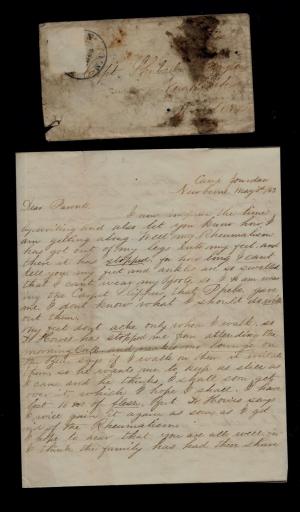 Capt.
Camp Jourdan
Newberne May 3d 1863
Dear Parents
I am improve the time
by writing and also let you know how I
am getting along. Well my Rheumatism
has got out of my legs into my feet and
there it has stopped, for how long I cant
tell you. my feet and ankles are so swelled
that I can't wear my boots so I am wear
ing the Carpet Slippers that Phebe gave
me. I dont know what I should do with
out them.
My feet dont ache only when I walk, so
Dr Howes has stopped me from attending the
morning Call and makes me lounge on
the bed. Says if I walk on them it irritates
them, so he wants me to keep as still as
I can and he thinks I shall soon get
over it, which I hope I shall. I have
lost 10 lbs of flesh, but Dr Howes says
I will gain it again as soon as I get
rid of the Rheumatism.
I hope to hear that you are all well, as
I think the family has had their share